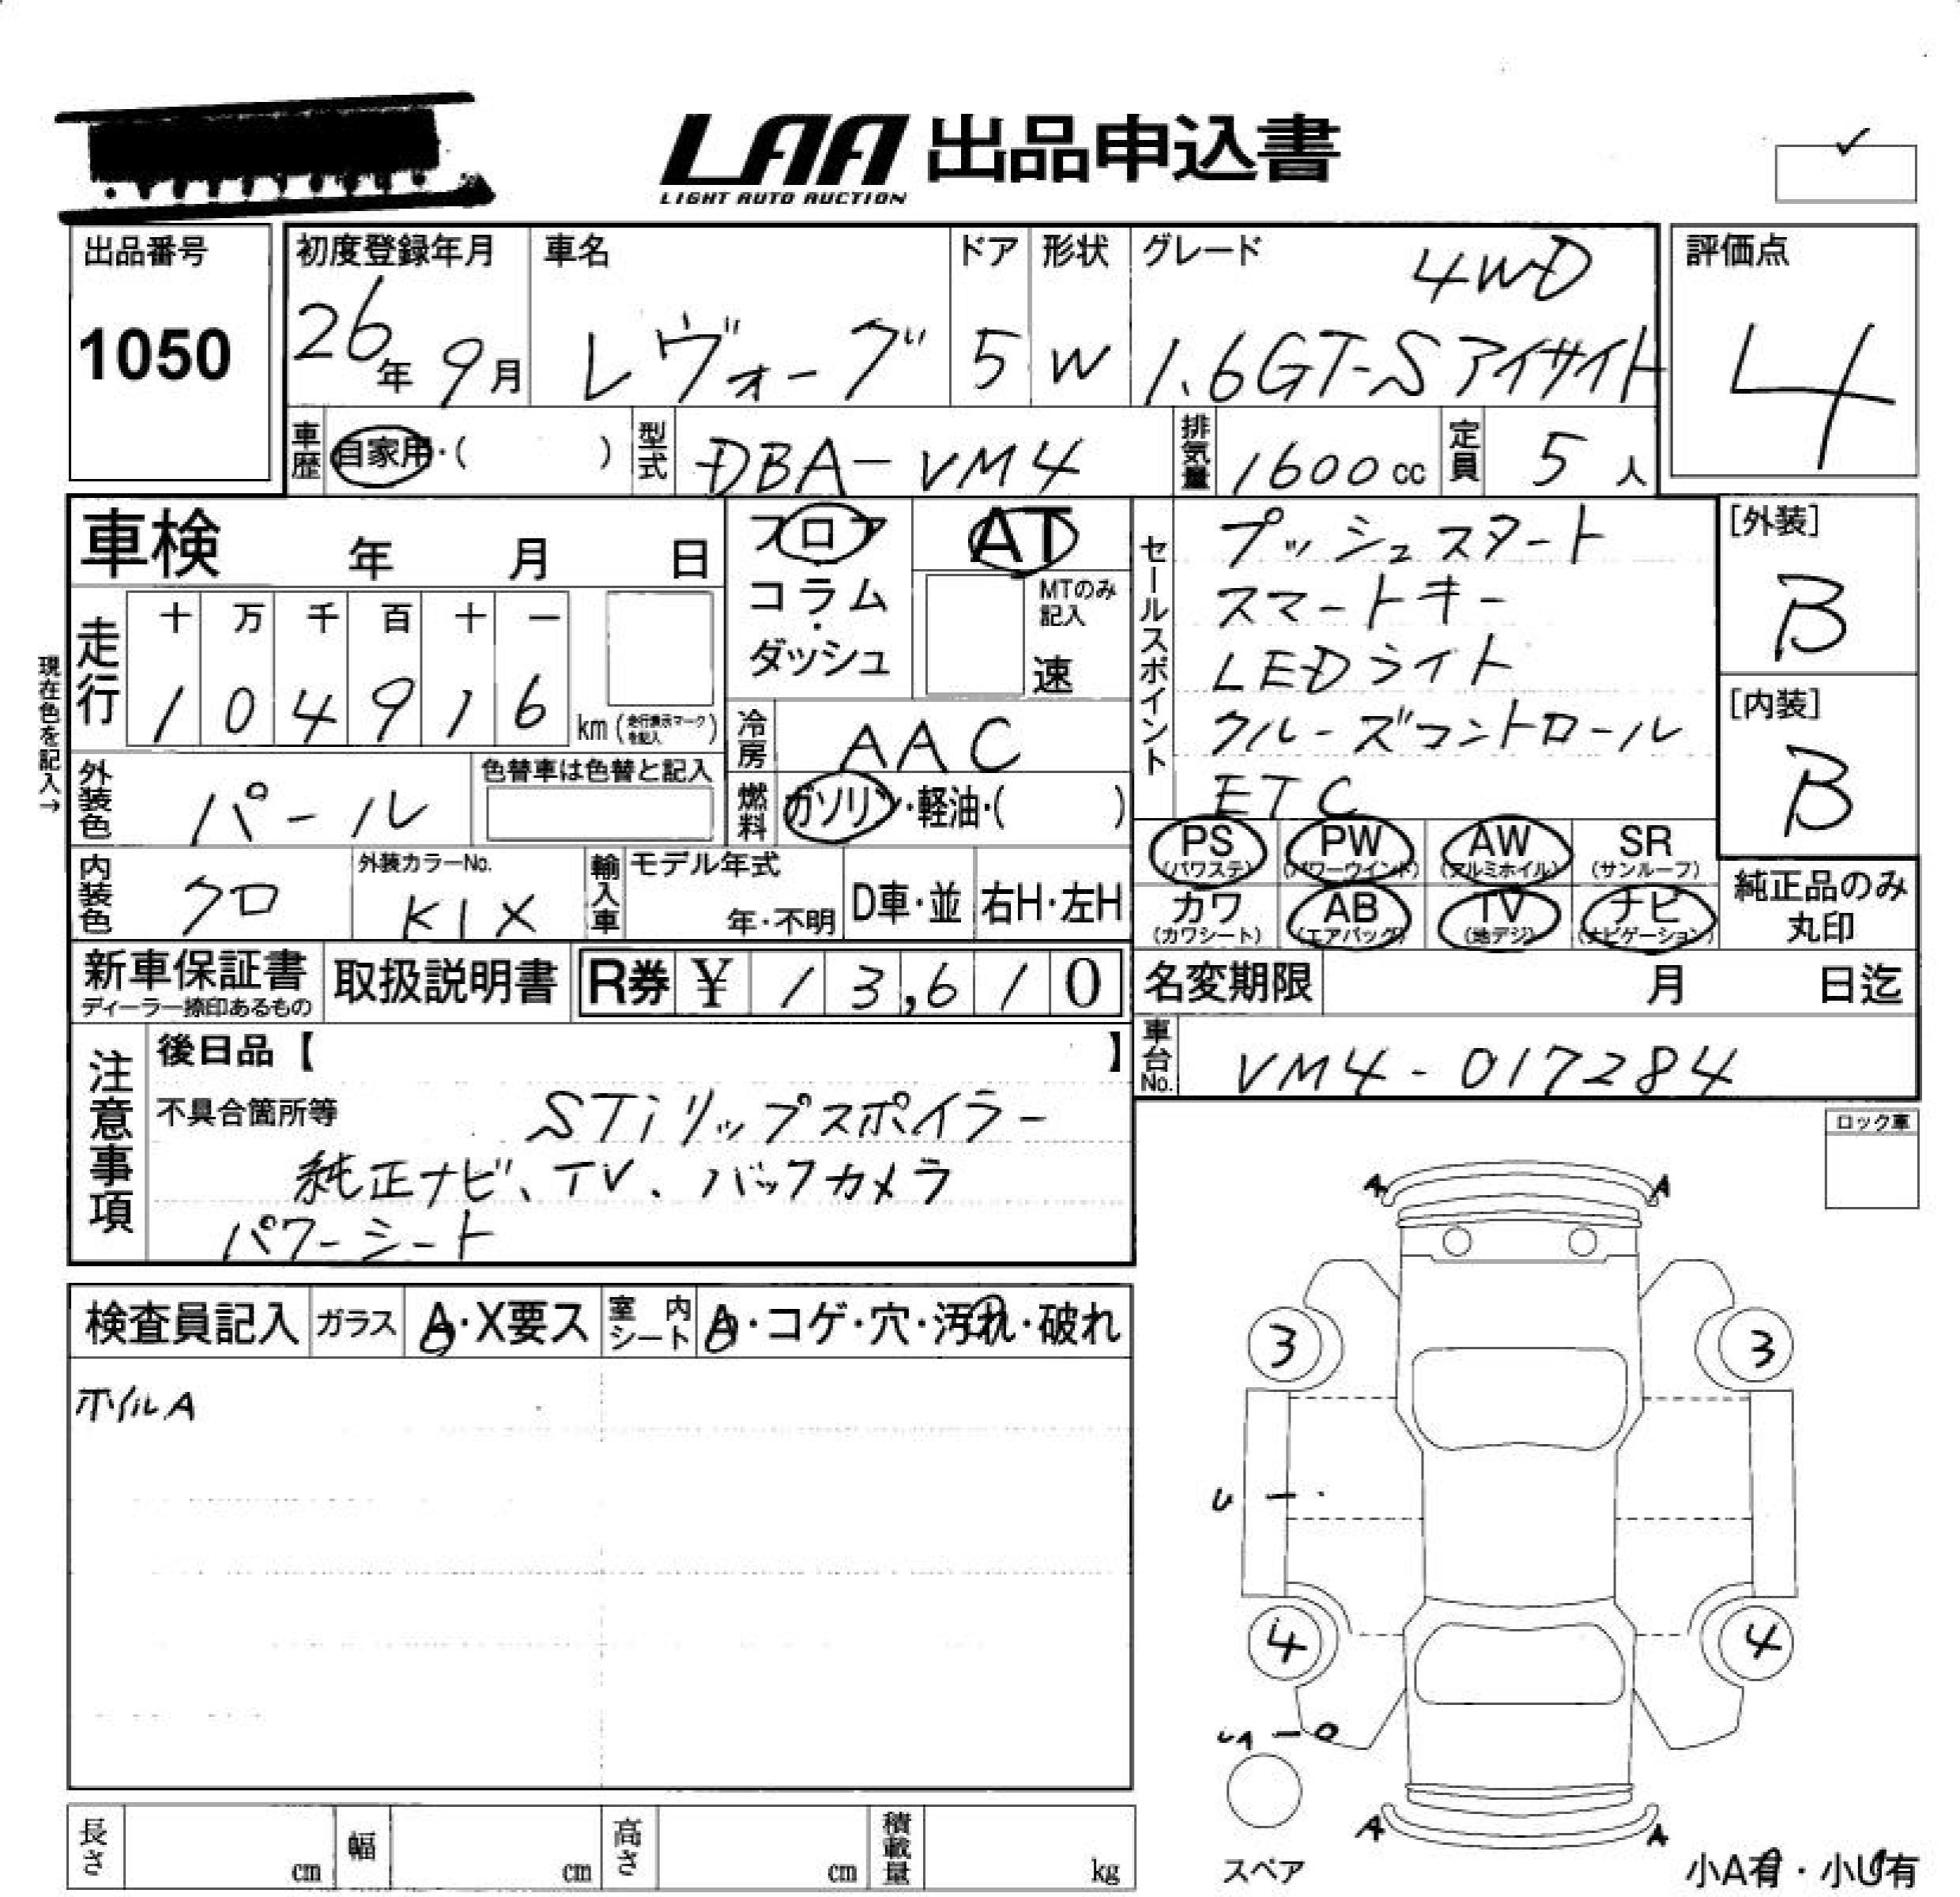 LAA 出品申込書
LIGHT AUTO AUCTION
出品番号
1050
初度登録年月
26年 9月
車名
レヴォーグ
ドア
5
形状
W
グレード
4WD
1.6GT-S アイサイト
評価点
4
車歴 自家用・( )
型式 DBA-VM4
排気量 1600 cc
定員 5 人
車検 年 月 日
フロア
コラム・
ダッシュ
AT
MTのみ
記入
速
セールスポイント
プッシュスタート
スマートキー
LEDライト
クルーズコントロール
ETC
[外装]
B
[内装]
B
現在色を記入→
走行
十 万 千 百 十 一
1 0 4 9 1 6 km (走行表示マークを記入)
冷房 AAC
外装色 パール
色替車は色替と記入
燃料 ガソリン・軽油・( )
PS (パワステ) PW (パワーウインド) AW (アルミホイル) SR (サンルーフ)
カワ (カワシート) AB (エアバッグ) TV (地デジ) ナビ (ナビゲーション)
純正品のみ
丸印
内装色 クロ
外装カラーNo.
K1X
輸入車 モデル年式
年・不明 D車・並 右H・左H
新車保証書
ディーラー捺印あるもの
取扱説明書
R券 ¥ 13,610
名変期限 月 日迄
車台No. VM4-017284
注意事項
後日品【 】
不具合箇所等 STiリップスポイラー
純正ナビ、TV、バックカメラ
パワーシート
ロック車
検査員記入 ガラス A・X要ス 室内シート A・コゲ・穴・汚れ・破れ
ホイルA
A A
3 3
U
4 4
A A
スペア
小A有・小U有
長さ cm 幅 cm 高さ cm 積載量 kg